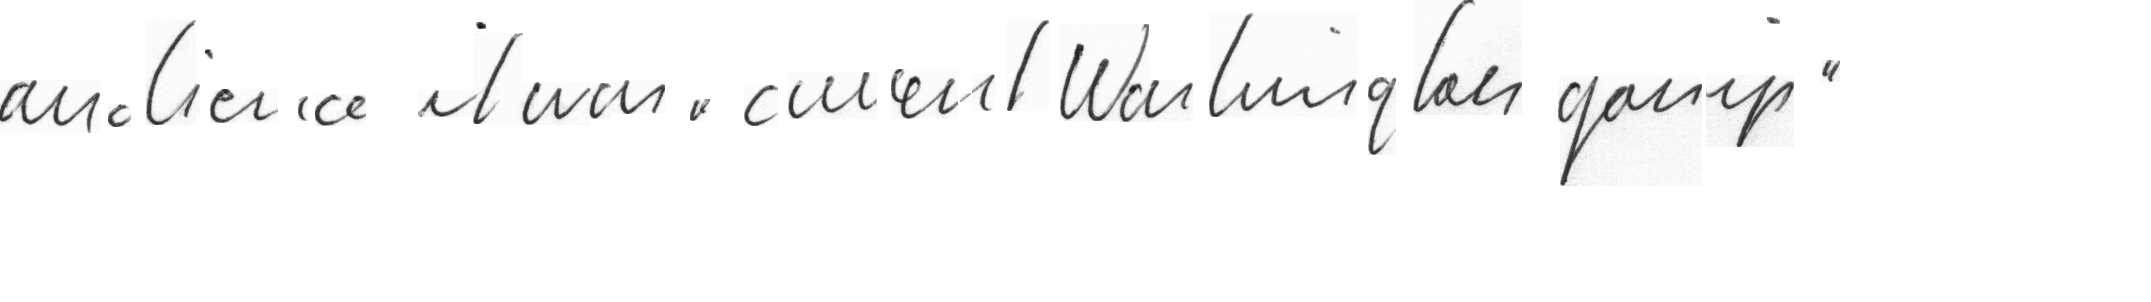 audience it was "current Washington gossip"